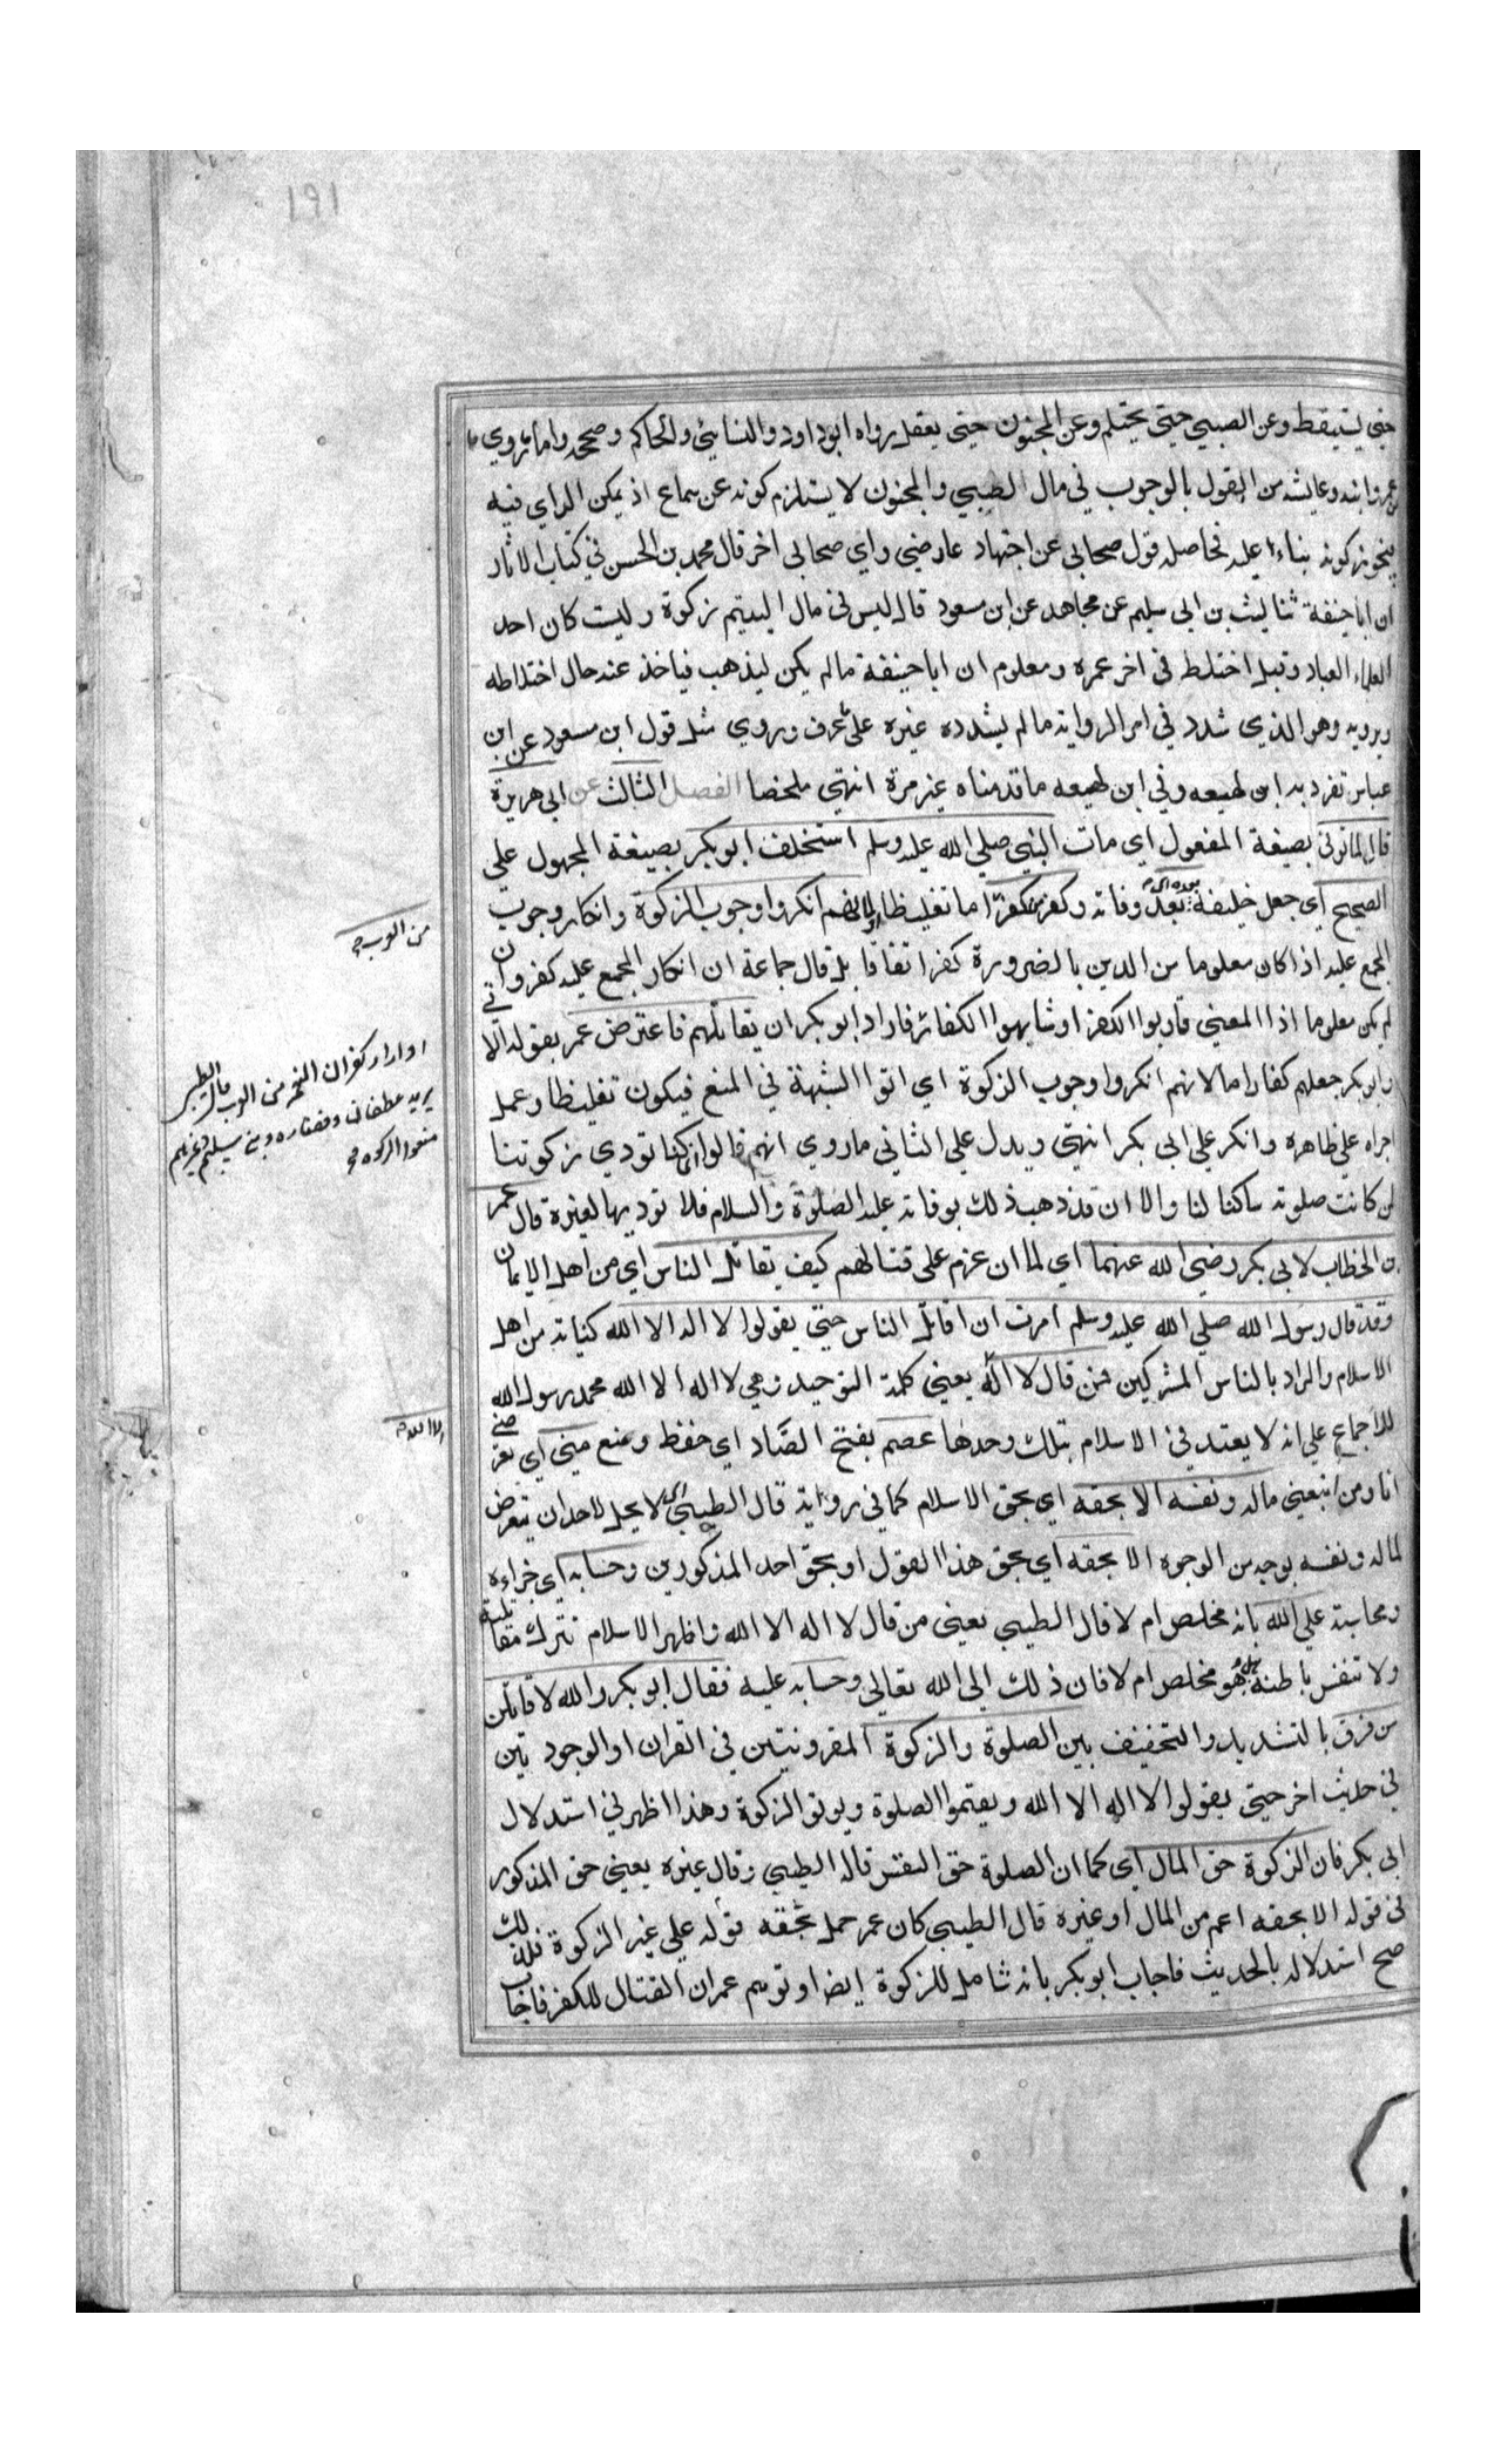 ١٩١
حتى يستيقظ وعن الصبي حتى يحتلم وعن المجنون حتى يعقل رواه ابو داود والنسايئ والحاكم وصححه واما ما روي
عمر وابنه وعايشه من القول بالوجوب في مال الطبيبي والمجنون لا يستلزم كونه عن سماع اذ يمكن الراي فيه
فيجوز كونه بناء عليه فحاصله قول صحابي عن اجتهاد عارضي راي صحابي اخر قال محمد بن الحسن في كتاب الاثار
ان ابا حنيفة ثنا ليث بن ابي سليم عن مجاهد عن ابن مسعود قال ليس في مال اليتيم زكوة وليث كان احد
العلماء العباد وقيل اختلط في اخر عمره ومعلوم ان ابا حنيفة ما لم يكن ليذهب فياخذ عند حال اختلاطه
ويرويه وهو الذي شدد في امر الرواية ما لم يشدده غيره على عرف وروي مثل قول ابن مسعود عن ابن
عباس تفرد به ابن لهيعه وفي ابن لهيعه ما قدمناه غير مرة انتهى ملخصا الفصل الثالث عن ابي هريرة
قال لما توفى بصيغة المفعول اي مات النبي صلي الله عليه وسلم استخلف ابو بكر بصيغة المجهول علي
الصحيح اي جعل خليفة بعد وفاته وكفر من كفر اما تغليظا او لانهم انكروا وجوب الزكوة وانكار وجوب
المجمع عليه اذا كان معلوما من الدين بالضرورة كفر اتفاقا بل قال جماعة ان انكار المجمع عليه كفر وان
لم يكن معلوما اذا المعنى قاربوا الكفر او شابهوا الكفار فاراد ابو بكر ان يقاتلهم فاعترض عمر بقوله الا تي
وابو بكر جعلهم كفارا اما لانهم انكروا وجوب الزكوة اي اتوا الشبهة في المنع فيكون تغليظا وعمل
اجراه على ظاهره وانكر علي ابي بكر انتهى ويدل علي الثاني ما روي انهم قالوا انما كنا نودي زكوتنا
لمن كانت صلوته ساكنا لنا والا ان قد ذهب ذلك بوفاته عليه الصلوة والسلام فلا نوديها لغيره قال عمر
بن الخطاب لابي بكر رضي الله عنهما اي لما ان عزم على قتالهم كيف تقاتل الناس اي من اهل الايمان
وقد قال رسول الله صلي الله عليه وسلم امرت ان اقاتل الناس حتى يقولوا لا اله الا الله كناية من اهل
الاسلام والمراد بالناس المشركين فمن قال لا اله يعني كلمة التوحيد وهي لا اله الا الله محمد رسول الله
للاجماع علي انه لا يعتد في الاسلام بتلك وحدها عصم بفتح الصاد اي حفظ ومنع مني اي تعرضي
انا ومن اتبعني ماله ونفسه الا بحقه اي بحق الاسلام كما في رواية قال الطيبي اي لا يحل لاحد ان يتعرض
لماله ونفسه بوجه من الوجوه الا بحقه اي بحق هذا القول او بحق احد المذكورين وحسابه اي جزاءه
ومحاسبته علي الله بانه مخلص ام لا قال الطيبي يعني من قال لا اله الا الله واظهر الاسلام نترك مقاتلته
ولا نفتش باطنه هل هو مخلص ام لا فان ذلك الى الله تعالي وحسابه عليه فقال ابو بكر والله لاقاتلن
من فرق بالتشديد والتخفيف بين الصلوة والزكوة المقرونتين في القران او الوجودتين
في حديث اخر حتى يقولوا لا اله الا الله ويقيموا الصلوة ويوتوا الزكوة وهذا اظهر في استدلال
ابي بكر فان الزكوة حق المال اي كما ان الصلوة حق النفس قاله الطيبي وقال غيره يعني حق المذكور
في قوله الا بحقه اعم من المال او غيره قال الطيبي كان عمر حمل بحقه قوله على غير الزكوة فلذلك
صح استدلاله بالحديث فاجاب ابو بكر بانه شامل للزكوة ايضا او توهم عمر ان القتال للكفر فاجاب
من العرب
او اراد كفران النعم من العرب قال الطيبي
يريد غطفان وفضاره وبني سليم وغيرهم
منعوا الزكوه
الا الله